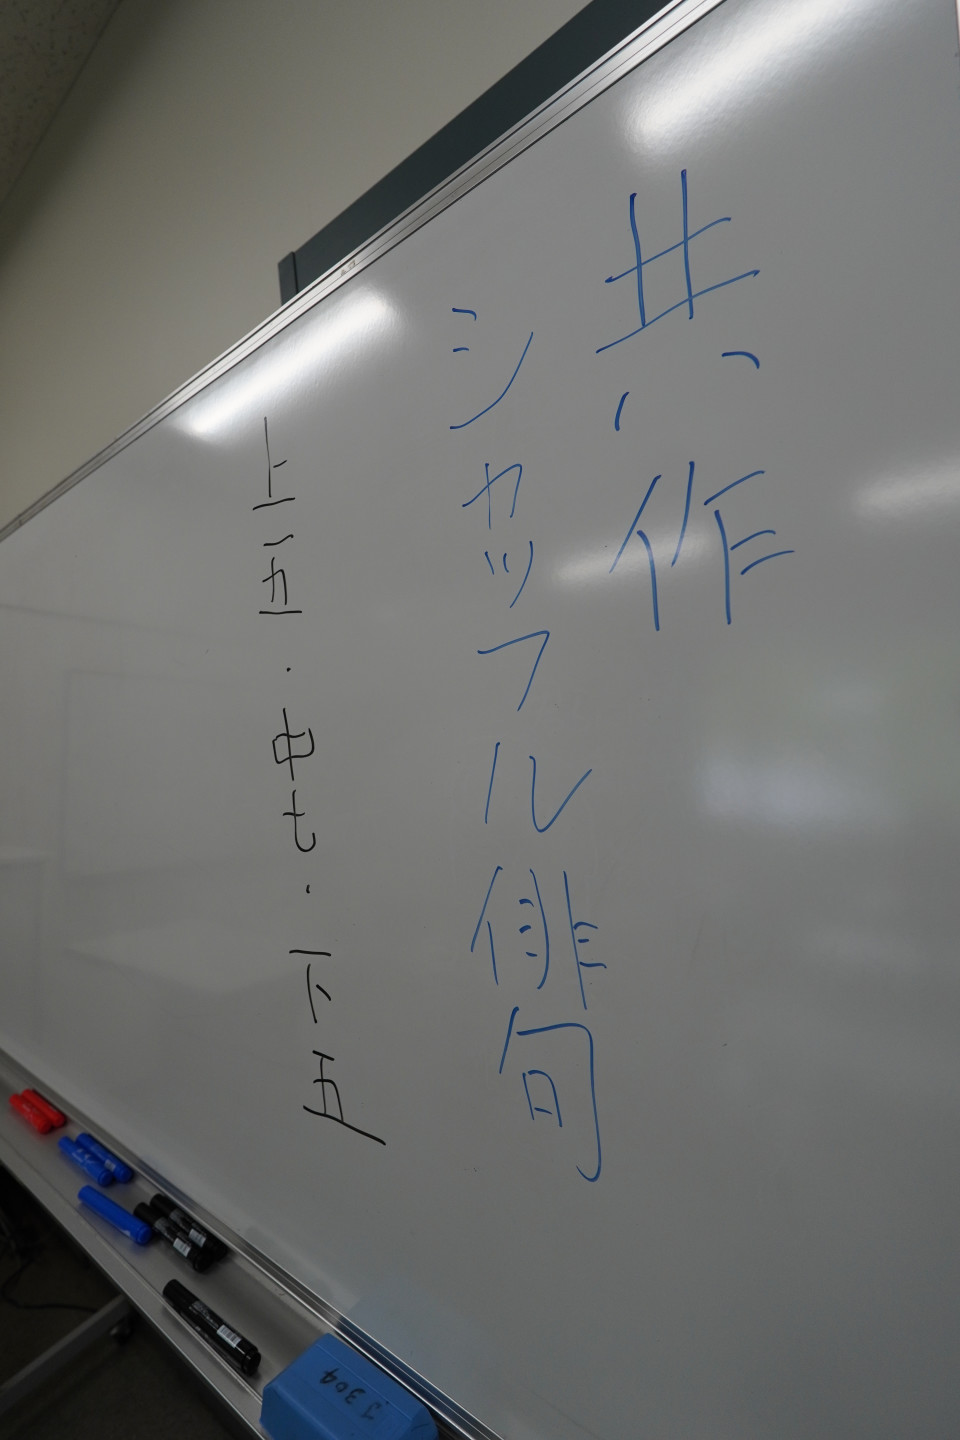 共作
シャッフル俳句
上五・中七・下五
J304